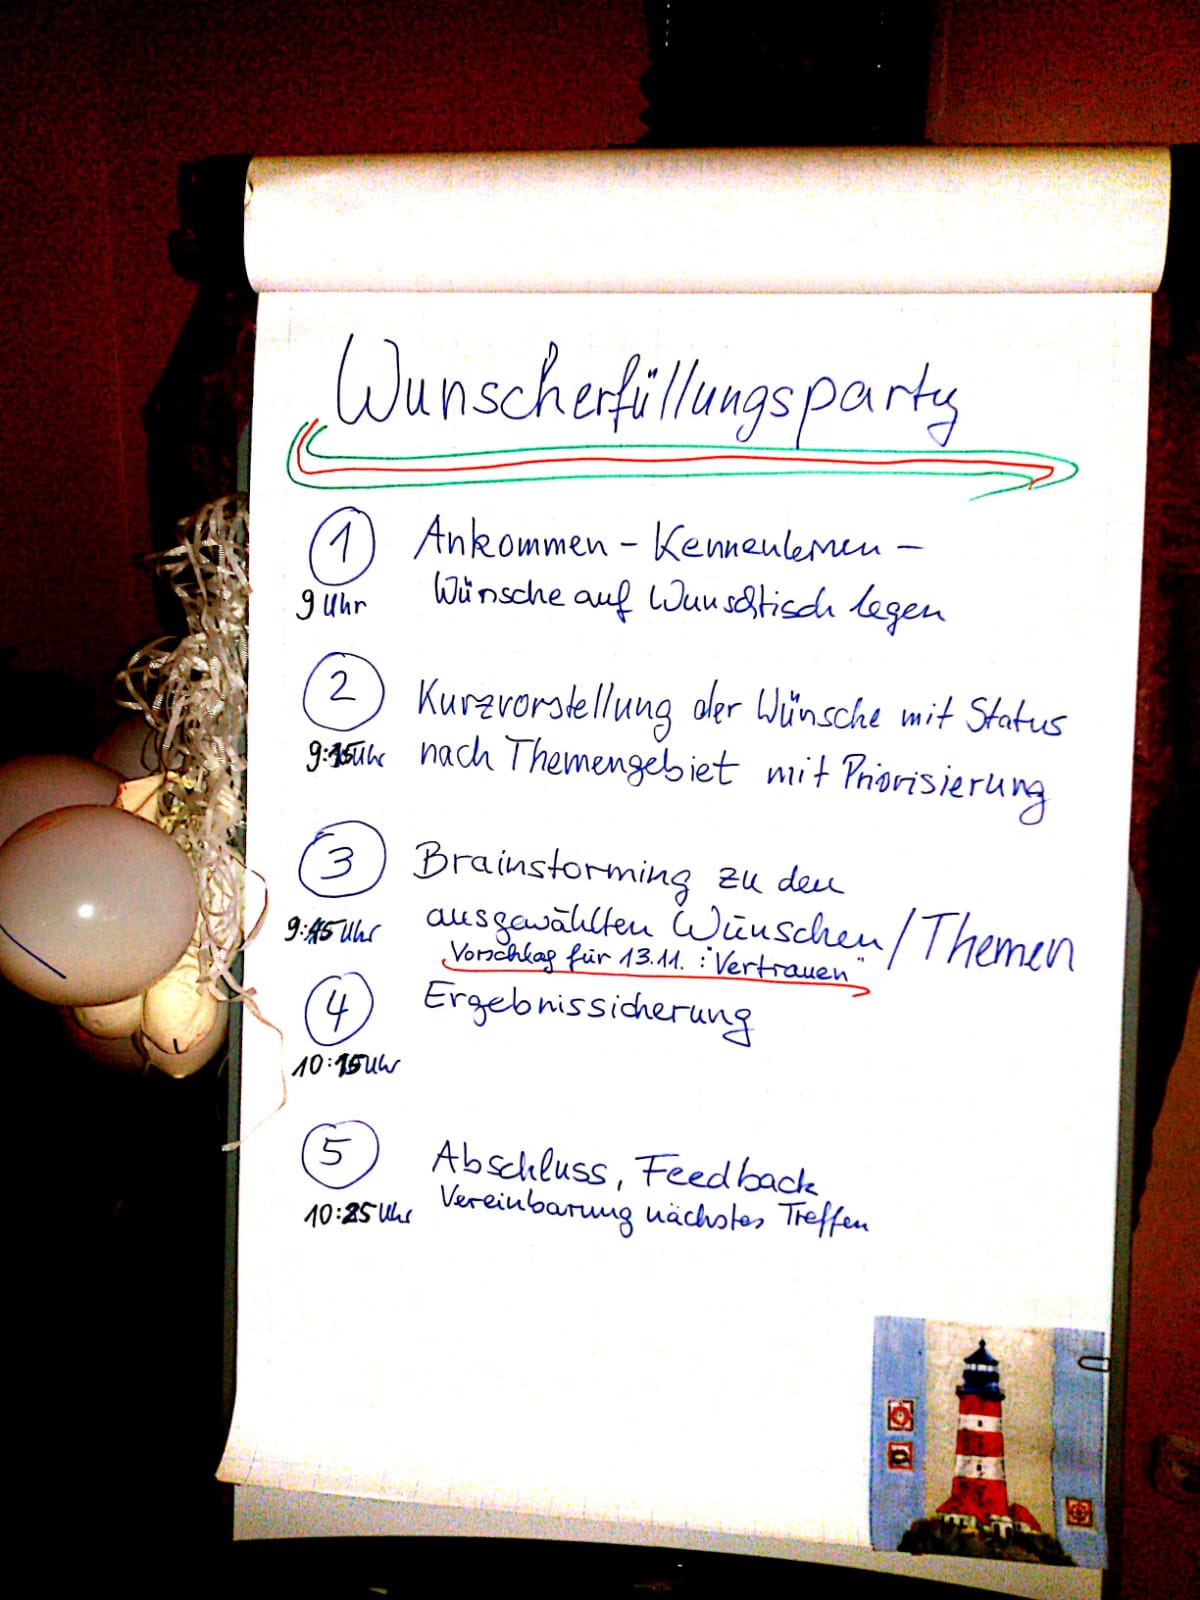 Wunscherfüllungsparty
1 Ankommen - Kennenlernen -
9 Uhr Wünsche auf Wunschtisch legen
2 Kurzvorstellung der Wünsche mit Status
9:15 Uhr nach Themengebiet mit Priorisierung
3 Brainstorming zu den
9:45 Uhr ausgewählten Wünschen / Themen
Vorschlag für 13.11. : "Vertrauen"
4 Ergebnissicherung
10:15 Uhr
5 Abschluss, Feedback
10:25 Uhr Vereinbarung nächstes Treffen